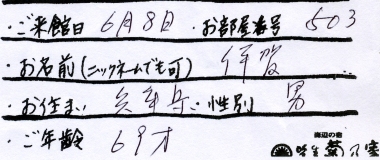 ・ご来館日 6月8日 ・お部屋番号 503
・お名前(ニックネームでも可) 伊賀
・お住まい 兵庫県 ・性別 男
・ご年齢 69才
海辺の宿